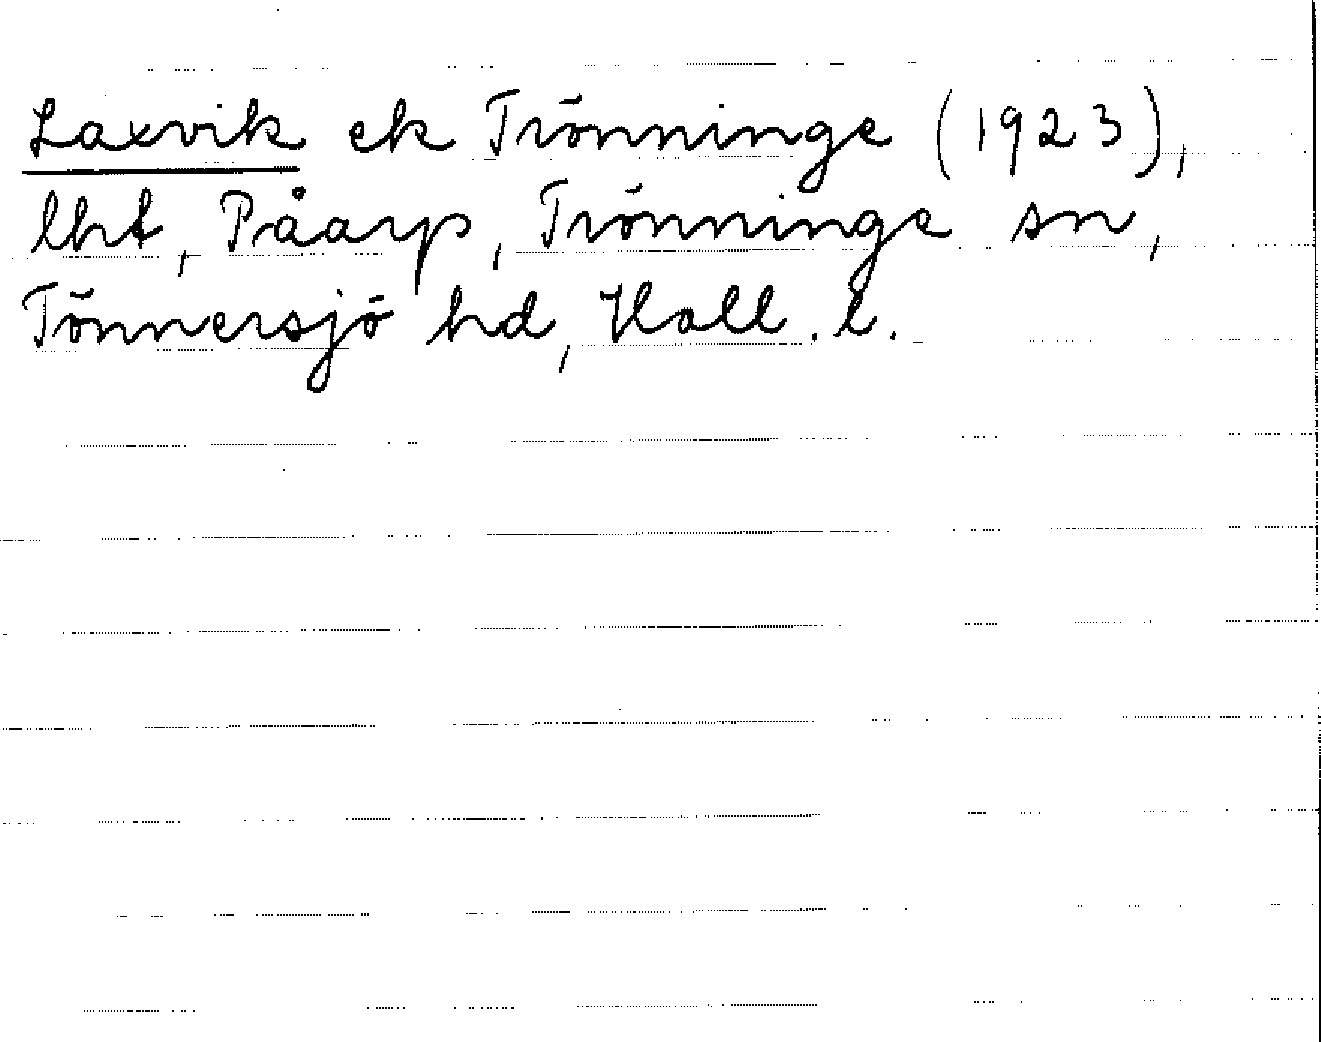 Laxvik ek Trönninge (1923),
lht, Påarp, Trönninge sn,
Tönnersjö hd, Hall. l.